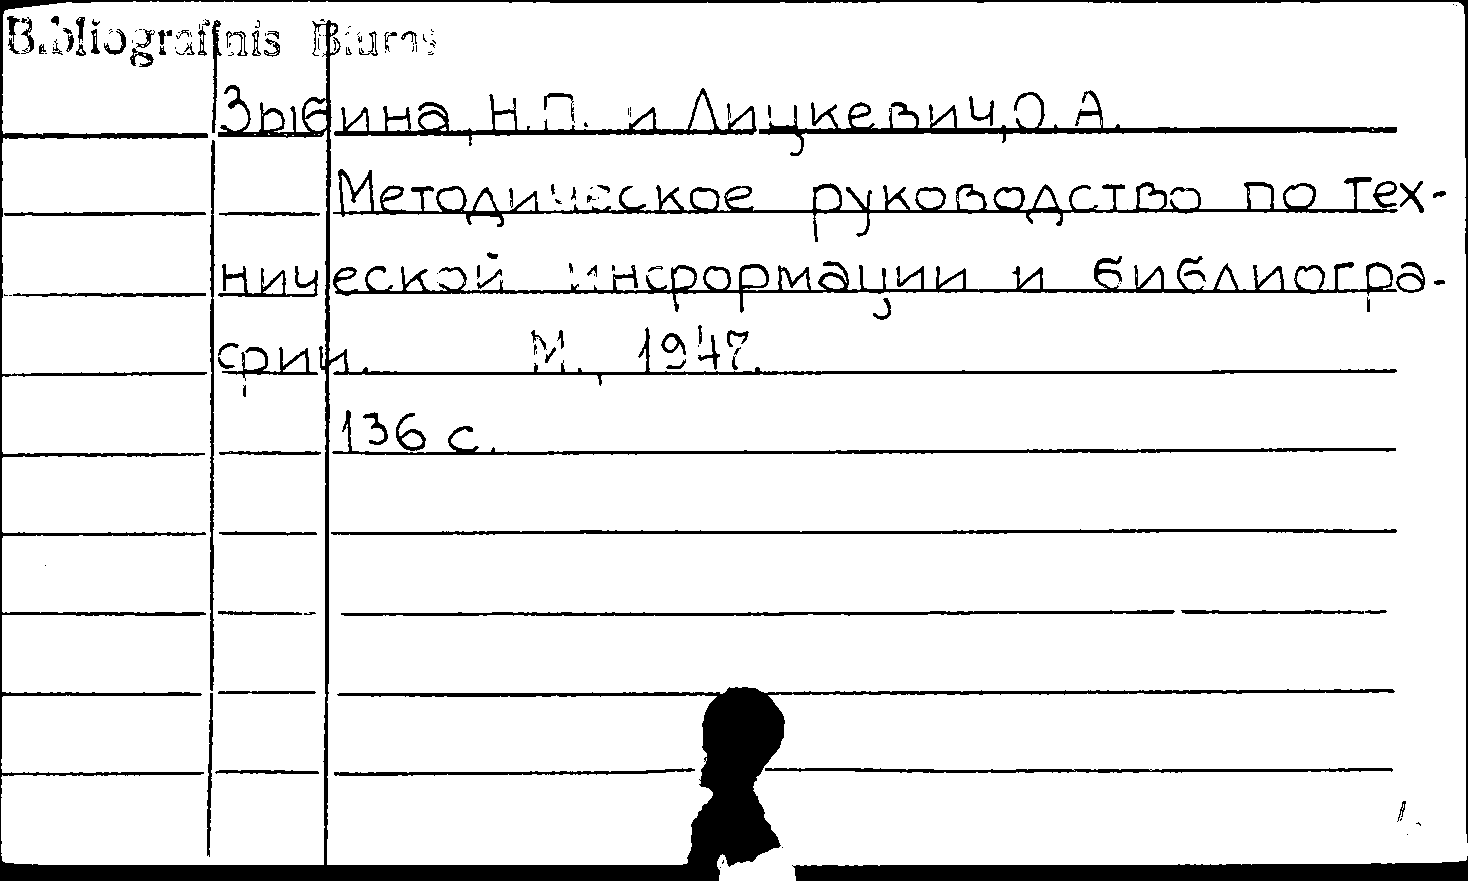 Bibliografinis Biuras
Зыбина, Н.П. и Лицкевич, О.А.
Методическое руководство по тех-
нической информации и библиогра-
фии. М., 1947.
136 с.